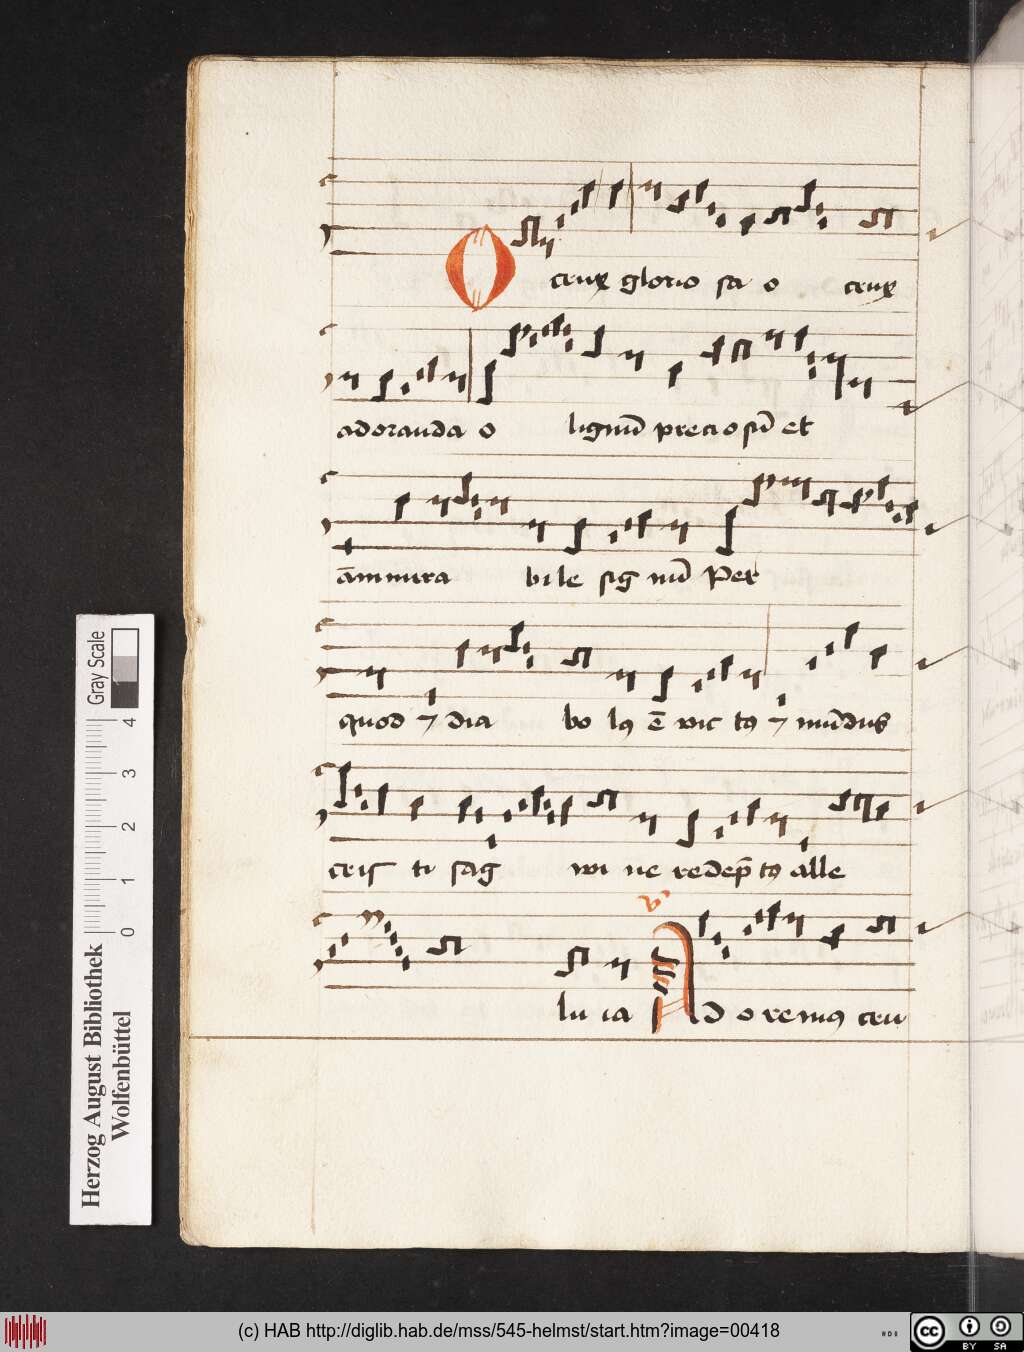 O crux glorio sa o crux
adoranda o lignū precio sū et
āmmira bi le sig nū Per
quod ⁊ dia bo lꝰ ē vic tꝰ ⁊ mūdus
cris ti sag wi ne redēpᷤ tꝰ alle
lu ia A d o remꝰ cru
Gray Scale
4
3
2
1
0
Herzog August Bibliothek
Wolfenbüttel
(c) HAB http://diglib.hab.de/mss/545-helmst/start.htm?image=00418
cc BY SA